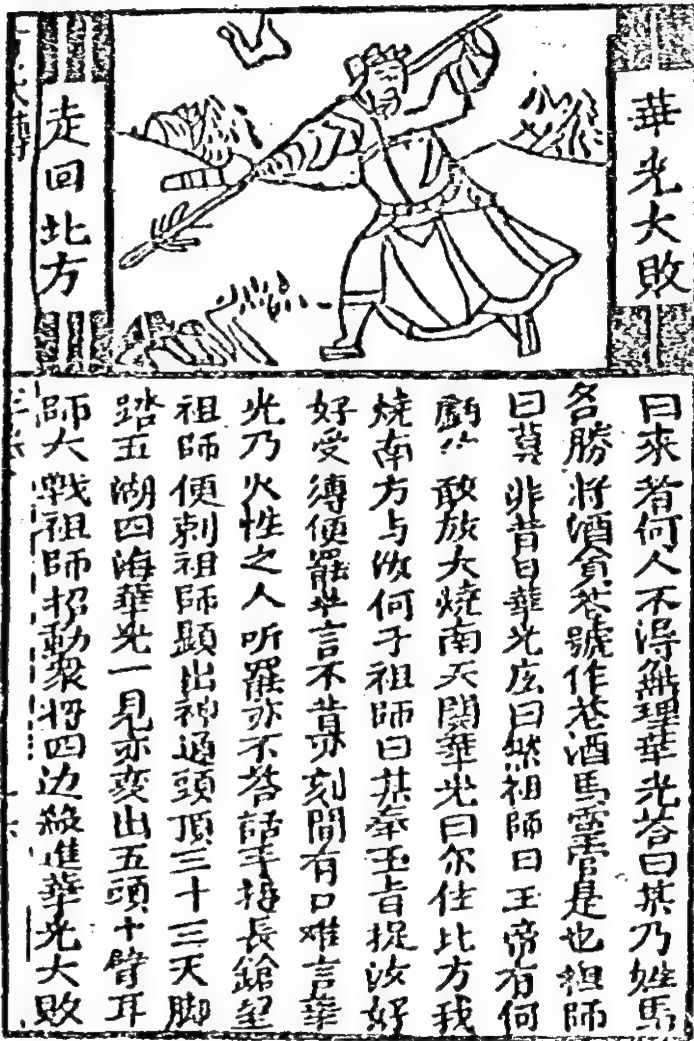 華光大敗
走回北方
曰來者何人不得無理華光答曰某乃姓馬
名勝將酒食苍號作苍酒馬灵官是也祖師
曰莫非昔日華光広曰然祖師曰玉帝有何
虧你敢放大燒南天関華光曰尔住北方我
燒南方与汝何于祖師曰某奉玉旨捉汝好
好受縛便罷半言不肯亦刻間有口难言華
光乃火性之人听罷亦不答話手招長鎗望
祖師便刺祖師顕出神通頭頂三十三天脚
踏五湖四海華光一見亦变出五頭十臂耳
師大戰祖師招動衆将四边殺進華光大敗